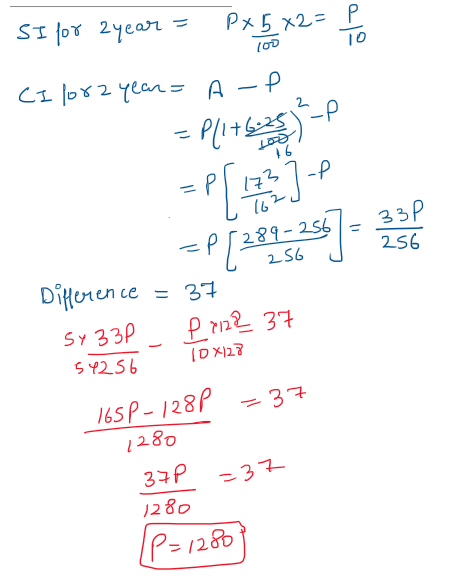 SI for 2year = P × 5/100 × 2 = P/10
CI for 2 year = A - P
= P(1 + 6.25/100 16)² - P
= P[17²/16²] - P
= P[289 - 256/256] = 33P/256
Difference = 37
5 × 33P/5 × 256 - P × 128/10 × 128 = 37
165P - 128P/1280 = 37
37P/1280 = 37
P = 1280